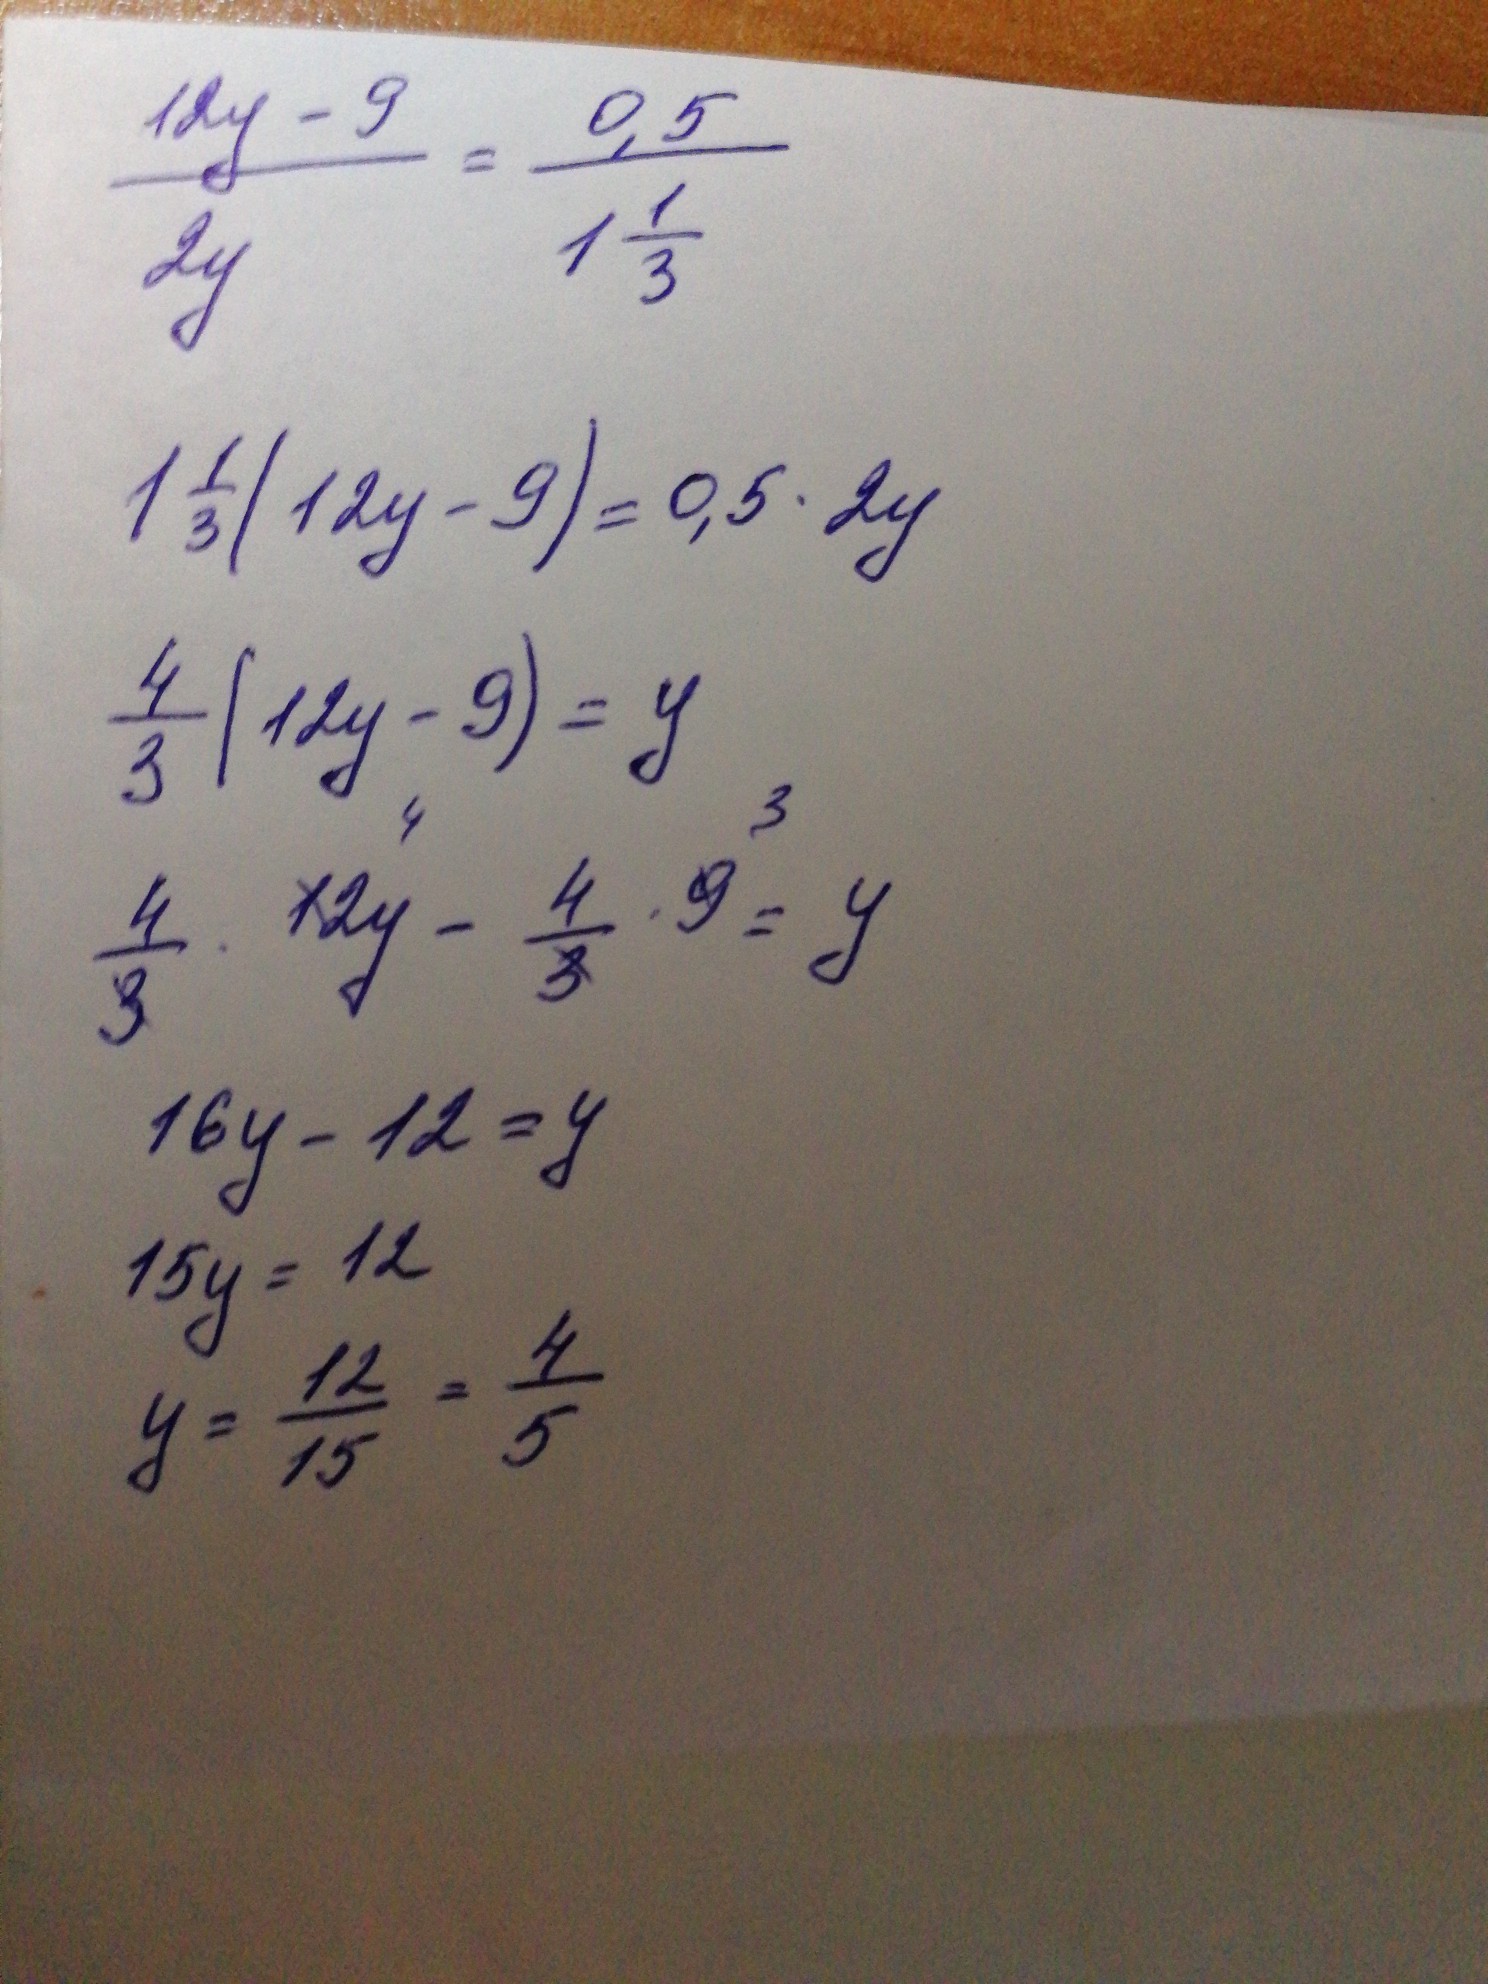 12y - 9 / 2y = 0,5 / 1 1/3
1 1/3 (12y - 9) = 0,5 · 2y
4/3 (12y - 9) = y
4 3
4/3 · 12y - 4/3 · 9 = y
16y - 12 = y
15y = 12
y = 12/15 = 4/5